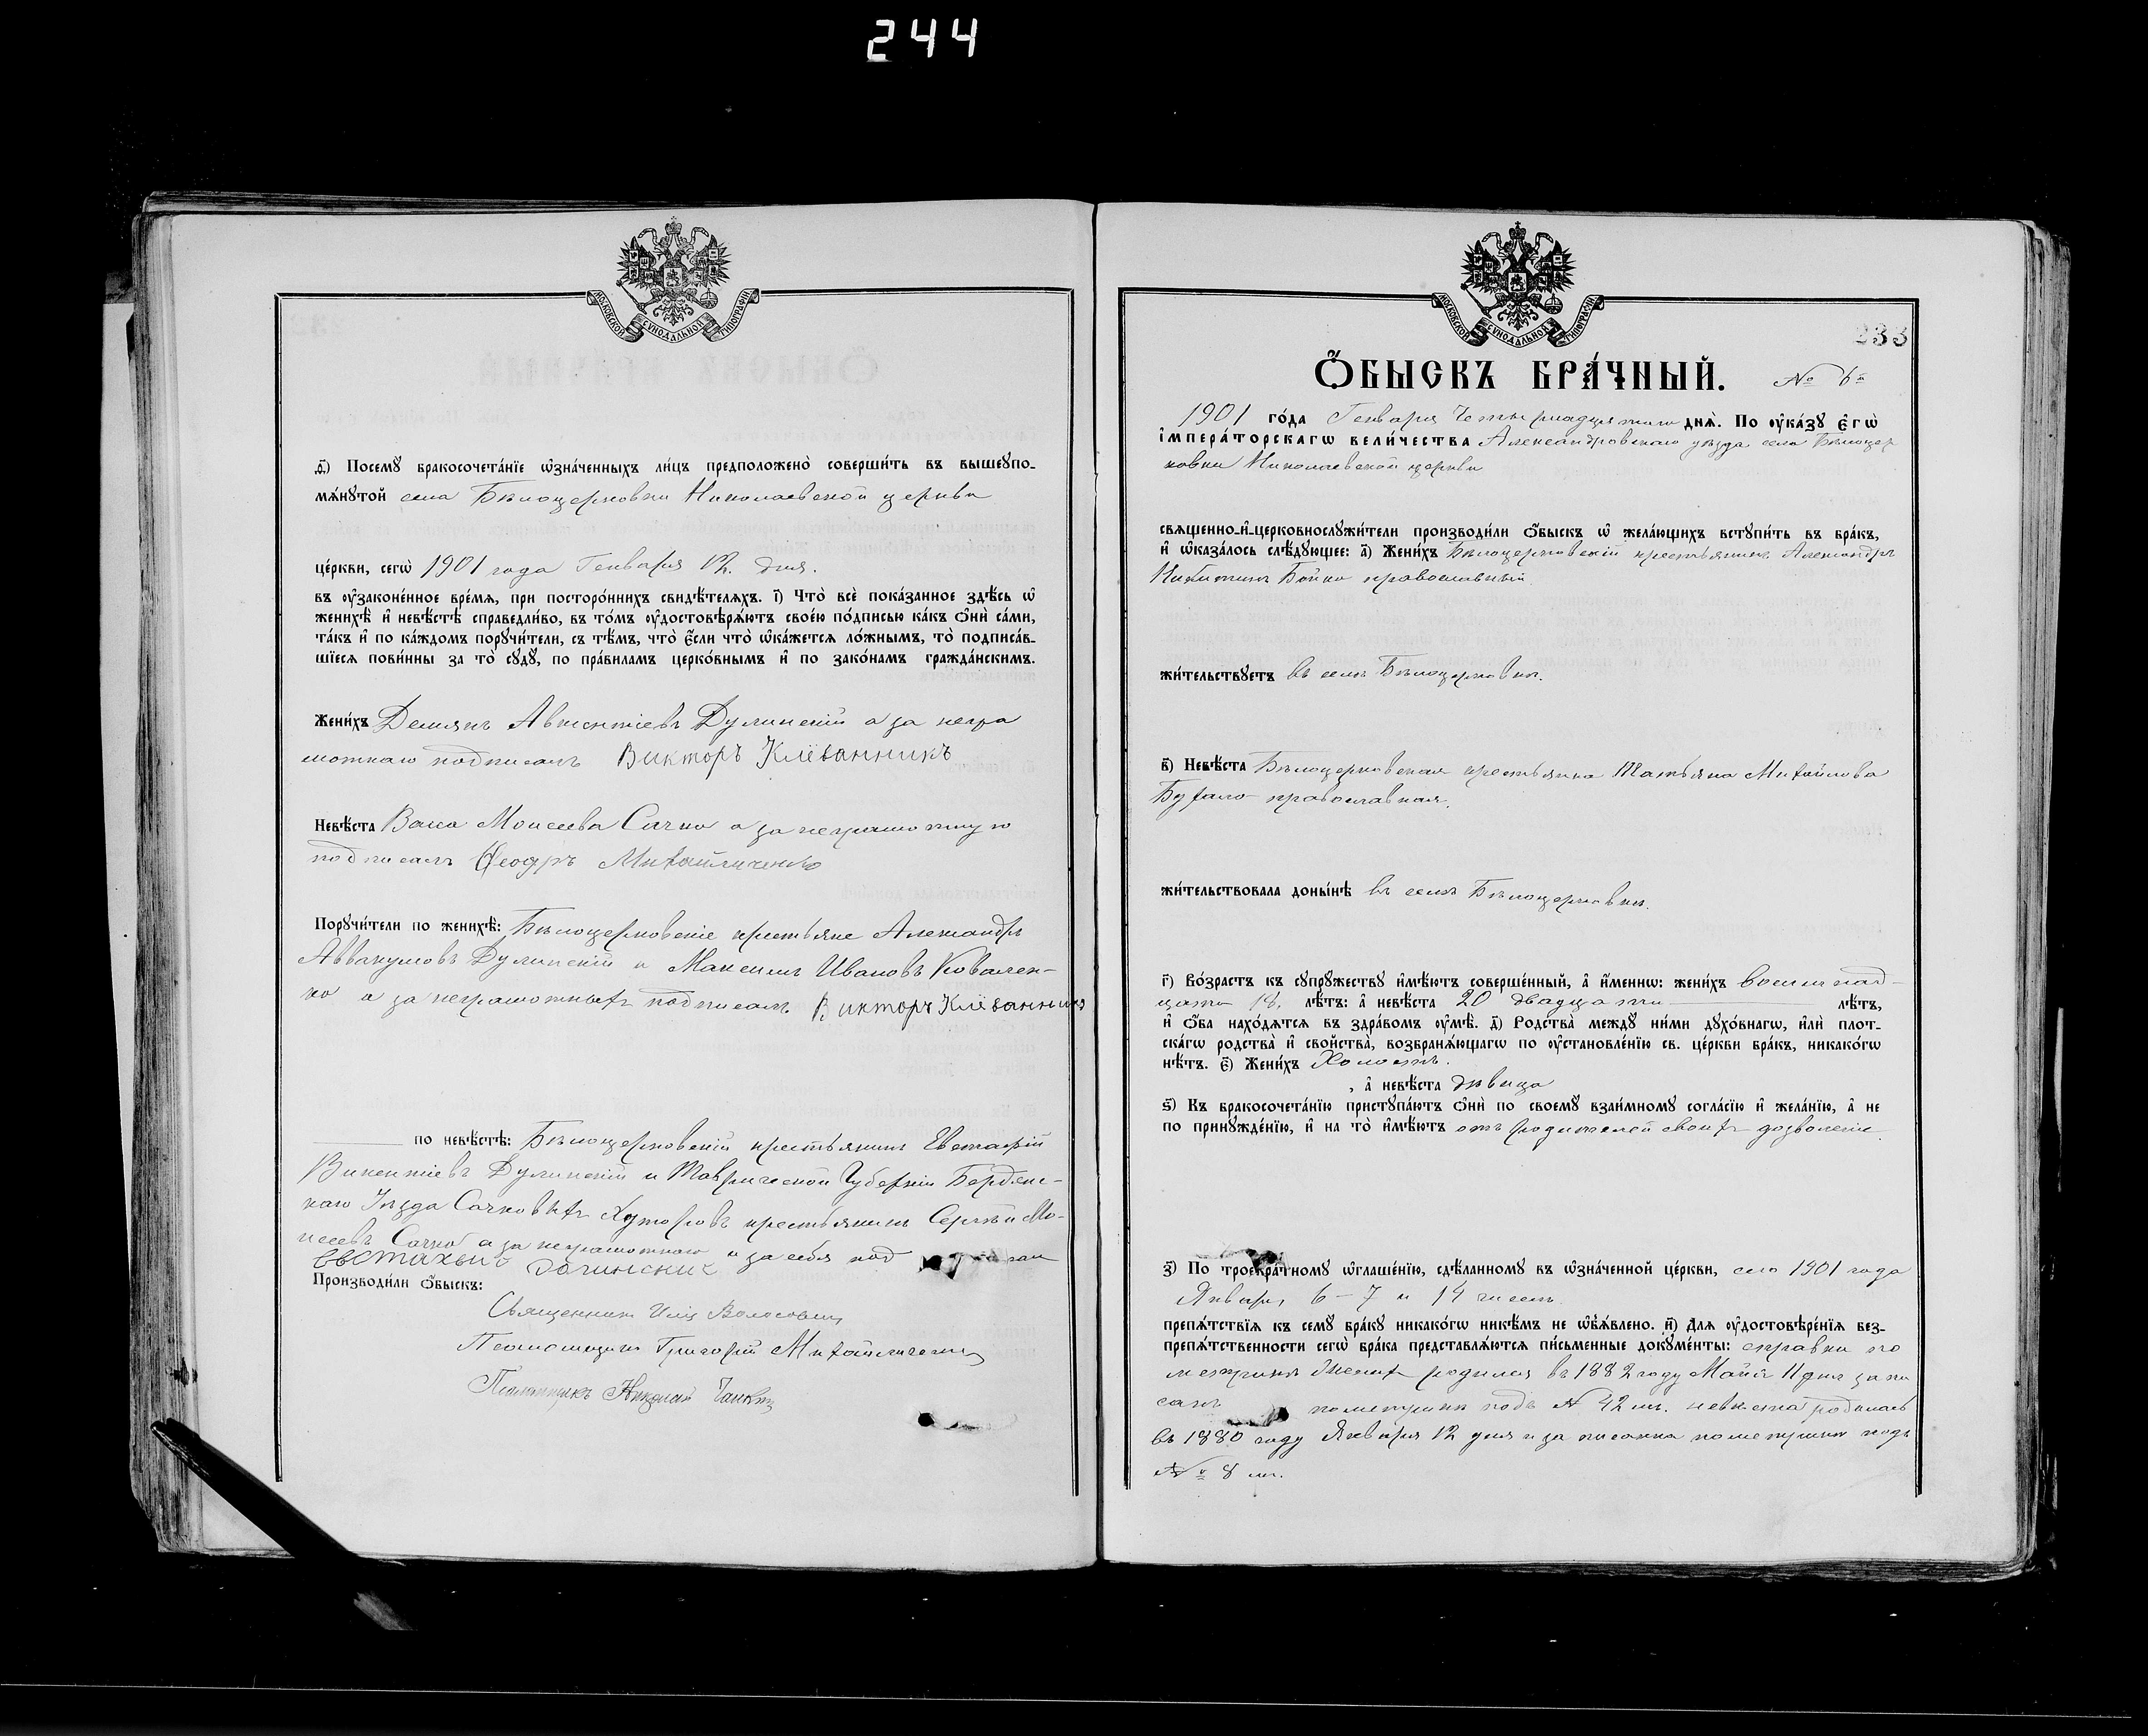 244
МОСКОВСКОЙ СѴНОДАЛЬНОЙ ТИПОГРАФІИ
ѳ҃) Посемꙋ бракосочета́нїе ѡ҆зна́ченныхъ ли́цъ предположено̀ соверши́ть въ вышеꙋпо-
мѧ́нꙋтой села Бѣлоцерковки Николаевской церкви
це́ркви, сегѡ̀ 1901 года Генваря 12. дня.
въ ѹ҆зако́ненное вре́мѧ, при посторо́ннихъ свидѣ́телѧхъ. і҃) Что̀ всѐ пока́занное здѣ́сь ѡ҆
женихѣ̀ и҆ невѣ́стѣ справедли́во, въ то́мъ ѹ҆достовѣрѧ́ютъ свое́ю по́дписью ка́къ ѻ҆нѝ са́ми,
та́къ и҆ по ка́ждомъ порꙋчи́тели, съ тѣ́мъ, что̀ є҆́сли что̀ ѡ҆ка́жетсѧ ло́жнымъ, то̀ подписа́в-
шїесѧ пови́нны за то̀ сꙋдꙋ̀, по пра́виламъ церко́внымъ и҆ по зако́намъ гражда́нскимъ.
Жени́хъ Демянъ Авксентіевъ Дулинскій а за негра
мотнаго подписалъ Викторъ Клёванникъ
Невѣ́ста Васса Моисеева Сачко а за неграмотную
подписалъ Ѳеодръ Михайличенко
Порꙋчи́тели по женихѣ̀: Бѣлоцерковскіе крестьяне Александръ
Аввакумовъ Дулинскій и Максимъ Ивановъ Ковален-
ко а за неграмотныхъ подписалъ Викторъ Клёванникъ
по невѣ́стѣ: Бѣлоцерковскій крестьянинъ Евстафій
Викентіевъ Дулинскій и Таврической Губерніи Бердянс-
каго Уѣзда Сачковыхъ Хуторовъ крестьянинъ Сергѣй Мо-
исеевъ Сачко а за неграмотнаго и за себя под
Евстахий
Производи́ли ѻ҆́быскъ:
Священникъ Илія Волосовичъ
Псаломщикъ Григорій Михайличенко
Псаломщикъ Николай
МОСКОВСКОЙ СѴНОДАЛЬНОЙ ТИПОГРАФІИ
233
Ѻ҆́БЫСКЪ БРА́ЧНЫЙ. № 6й
1901 го́да Генваря Четырнадцатаго днѧ̀. По ѹ҆ка́зꙋ є҆гѡ̀
і҆мпера́торскагѡ вели́чества Александровскаго уѣзда села Бѣлоцер
ковки Николаевской церкви
свѧщенно-и҆-церковнослꙋжи́тели производи́ли ѻ҆́быскъ ѡ҆ жела́ющихъ встꙋпи́ть въ бра́къ,
и҆ ѡ҆каза́лось слѣ́дꙋющее: а҃) Жени́хъ Бѣлоцерковскій крестьянинъ Александръ
Никитинъ Бойко православный
жи́тельствꙋетъ въ селѣ Бѣлоцерковки.
в҃) Невѣ́ста Бѣлоцерковская крестьянка Татьяна Михайлова
Бухало православная.
жи́тельствовала доны́нѣ въ селѣ Бѣлоцерковки.
г҃) Во́зрастъ къ сꙋпрꙋ́жествꙋ и҆мѣ́ютъ соверше́нный, а҆ и҆́меннѡ: жени́хъ восемнад-
цати 18. лѣ́тъ: а҆ невѣ́ста 20 двадцати лѣ́тъ,
и҆ ѻ҆́ба нахо́дѧтсѧ въ здра́вомъ ѹ҆мѣ̀. д҃) Родства̀ междꙋ̀ ни́ми дꙋхо́внагѡ, и҆лѝ плот-
ска́гѡ родства̀ и҆ свойства̀, возбранѧ́ющагѡ по ѹ҆становле́нїю св. це́ркви бра́къ, никако́гѡ
нѣ́тъ. є҃) Жени́хъ Холостъ.
, а҆ невѣ́ста дѣвица
ѕ҃) Къ бракосочета́нїю пристꙋпа́ютъ ѻ҆нѝ по своемꙋ̀ взаи́мномꙋ согла́сїю и҆ жела́нїю, а҆ не
по принꙋжде́нїю, и҆ на то̀ и҆мѣ́ютъ отъ родителей своихъ дозволеніе.
з҃) По троекра́тномꙋ ѡ҆глаше́нїю, сдѣ́ланномꙋ въ ѡ҆зна́ченной це́ркви, сего 1901 года
Января 6 – 7 и 14 чиселъ
препѧ́тствїѧ къ семꙋ̀ бра́кꙋ никако́гѡ никѣ́мъ не ѡ҆бъѧ́влено. и҃) Длѧ ѹ҆достовѣре́нїѧ без-
препѧ́тственности сегѡ̀ бра́ка представлѧ́ютсѧ пи́сьменные докꙋме́нты: справки по
метрикѣ Женихъ родился въ 1882 году Майя 11 дня запи
санъ пометрикѣ подъ № 42 м. невѣста родилась
въ 1880 году Января 12 дня и записанна пометрикѣ подъ
№ 8 м.